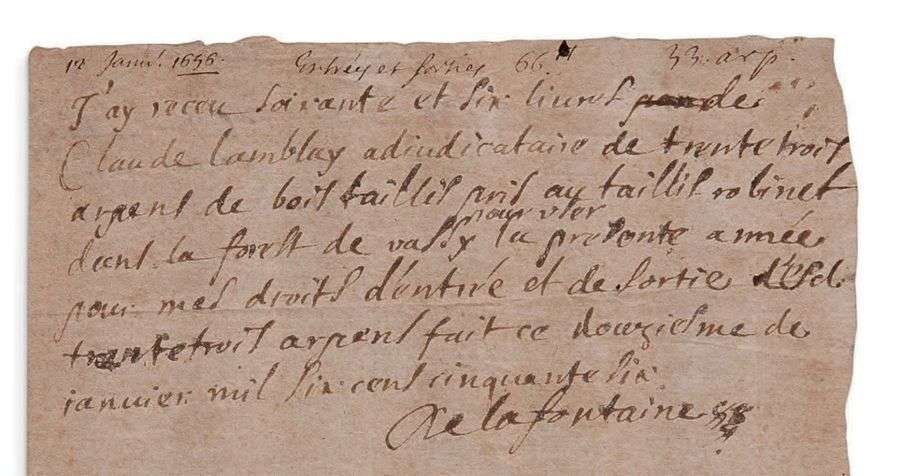 12 Janv. 1656. Entrées et sorties 66 ₶ 33. arp.
J'ay receu soixante et six livres de
Claude lamblay adiudicataire de trentetrois
arpens de bois taillis pris au taillis robinet
pour vser
dans la forest de vassy la presente année
pour mes droits d'entrée et de sortie
trentetrois arpens fait ce douziesme de
januier mil six cens cinquante six
De la fontaine